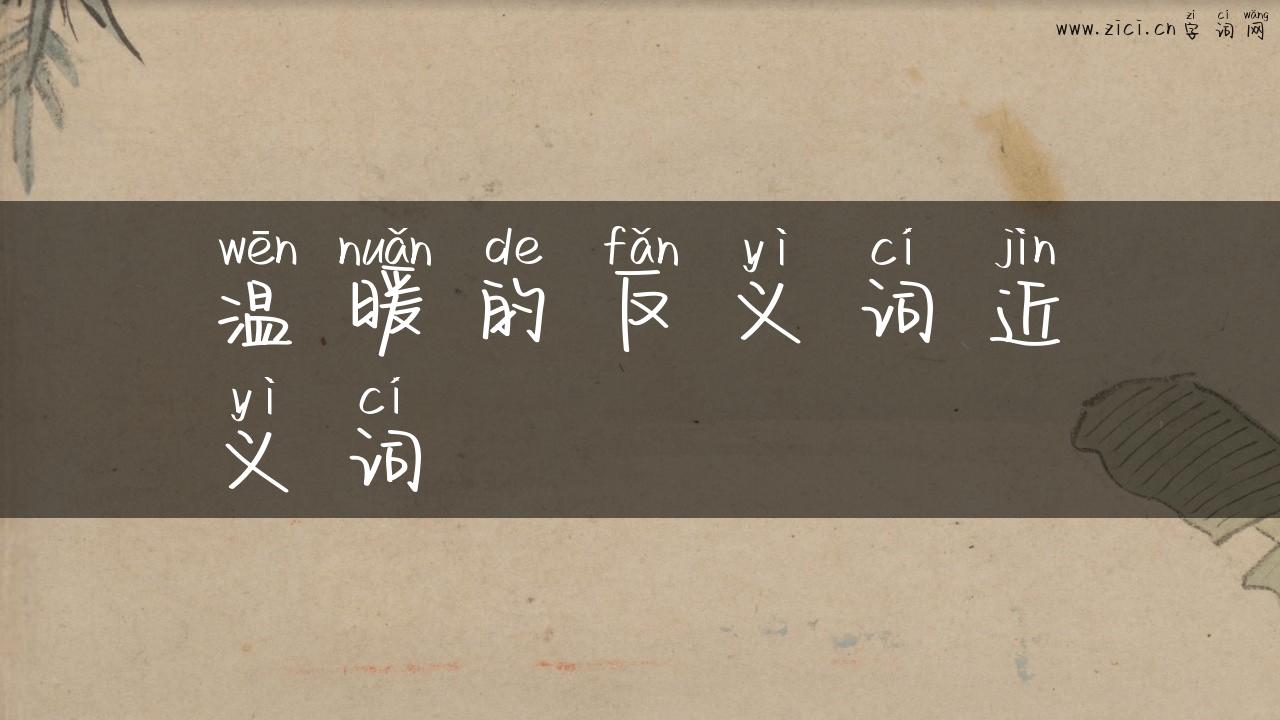 zì cí wǎng
www.zici.cn 字词网
wēn nuǎn de fǎn yì cí jìn
温暖的反义词近
yì cí
义词